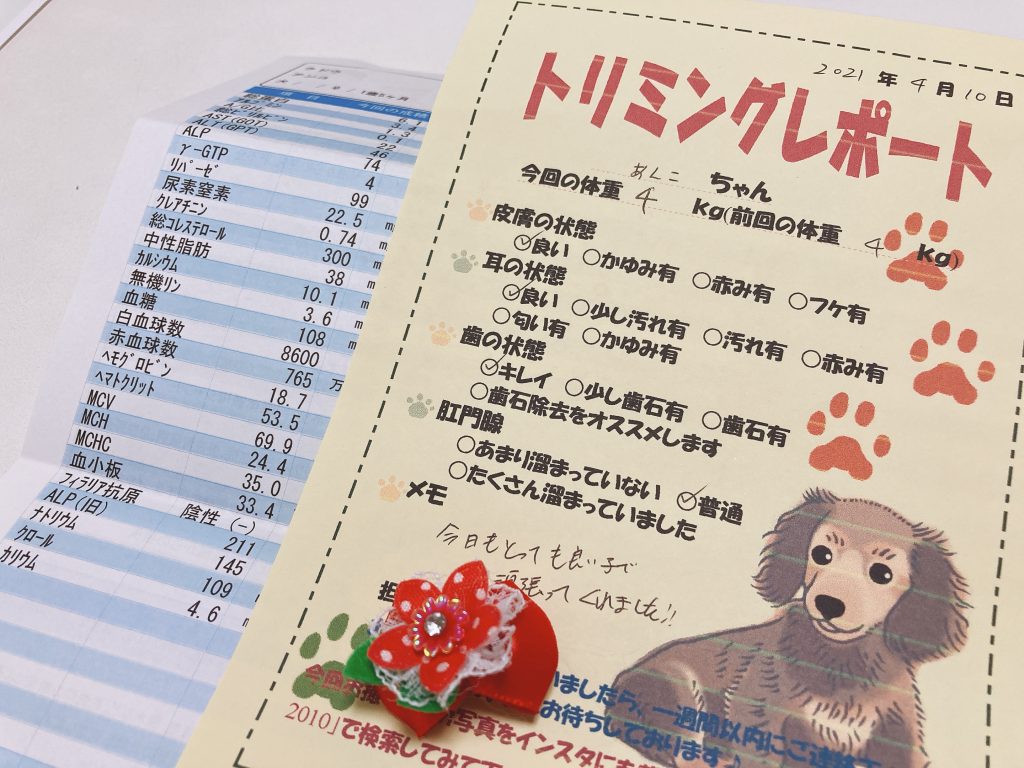 項 目 今回の成績
6.1
A/G比 1.3
総ビリルビン 0.1
AST(GOT) 22
ALT(GPT) 46
ALP 74
γ-GTP 4
リパーゼ 99
尿素窒素 22.5 m
クレアチニン 0.74 m
総コレステロール 300 m
中性脂肪 38 m
カルシウム 10.1 m
無機リン 3.6 m
血糖 108 m
白血球数 8600
赤血球数 765 万
ヘモグロビン 18.7
ヘマトクリット 53.5
MCV 69.9
MCH 24.4
MCHC 35.0
血小板 33.4
フィラリア抗原 陰性 (-)
ALP(旧) 211
ナトリウム 145
クロール 109
カリウム 4.6 m
2021 年 4 月 10 日
トリミングレポート
あんこ ちゃん
今回の体重 4 kg(前回の体重 4 kg)
皮膚の状態
良い かゆみ有 赤み有 フケ有
耳の状態
良い 少し汚れ有 汚れ有 赤み有
匂い有 かゆみ有
歯の状態
キレイ 少し歯石有 歯石有
歯石除去をオススメします
肛門腺
あまり溜まっていない 普通
たくさん溜まっていました
メモ
今日もとっても良い子で
頑張ってくれました!!
担
今回の いましたら、一週間以内にご連絡
お待ちしております♪
写真をインスタにも
2010」で検索してみて下